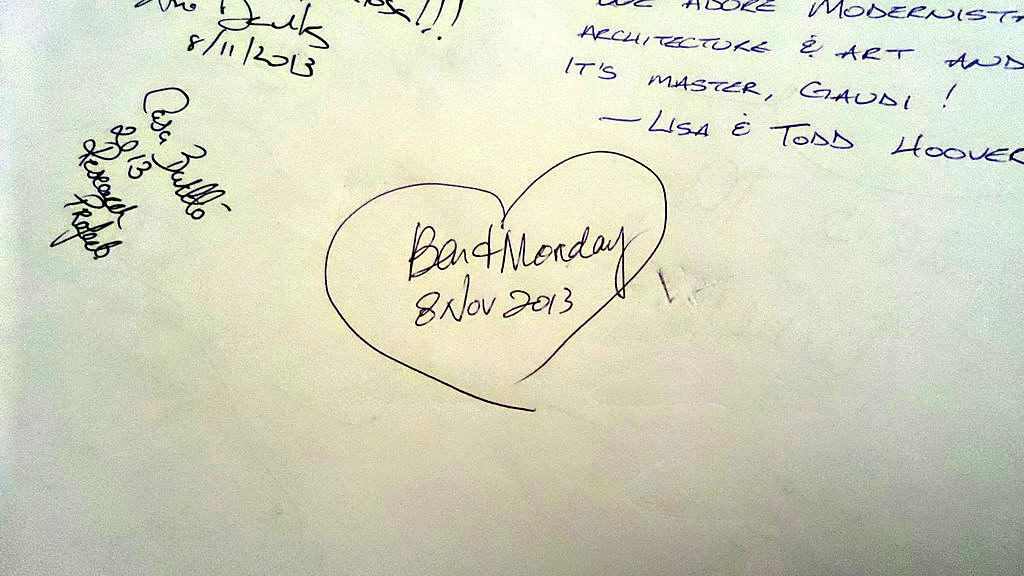 8/11/2013
WE ADORE MODERNISTA
ARCHITECTURE & ART AND
IT'S MASTER, GAUDI !
— LISA & TODD HOOVER
Casa Batlló
2013
Research
Ben & Monday
8 Nov 2013